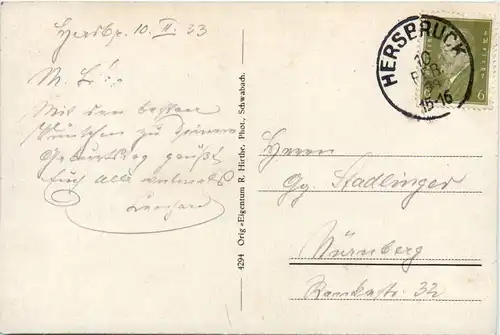 Hersbr. 10. II. 33
M. L.!
Mit den besten
Wünschen zu Deinem
Geburtstag grüßt
Euch alle
Leonhard
4294 Orig.-Eigentum B. Hirthe, Phot., Schwabach.
HERSBRUCK
10
FEB
33
15-16
6
Herrn
Gg. Stadlinger
Nürnberg
32